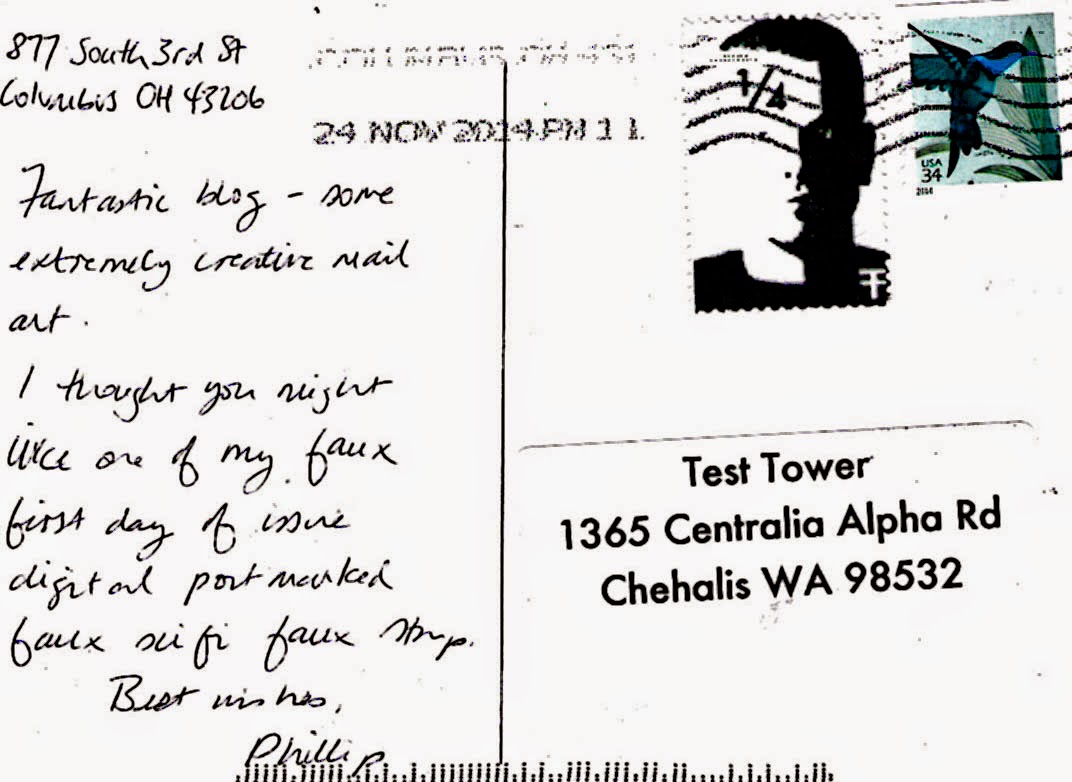 877 South 3rd St
Columbus OH 43206
COLUMBUS OH 431
24 NOV 2014 PM 11
1/4
T
USA
34
2014
Fantastic blog – some
extremely creative mail
art.
I thought you might
like one of my faux
first day of issue
digital postmarked
faux sci fi faux stamp.
Best wishes,
Phillip
Test Tower
1365 Centralia Alpha Rd
Chehalis WA 98532